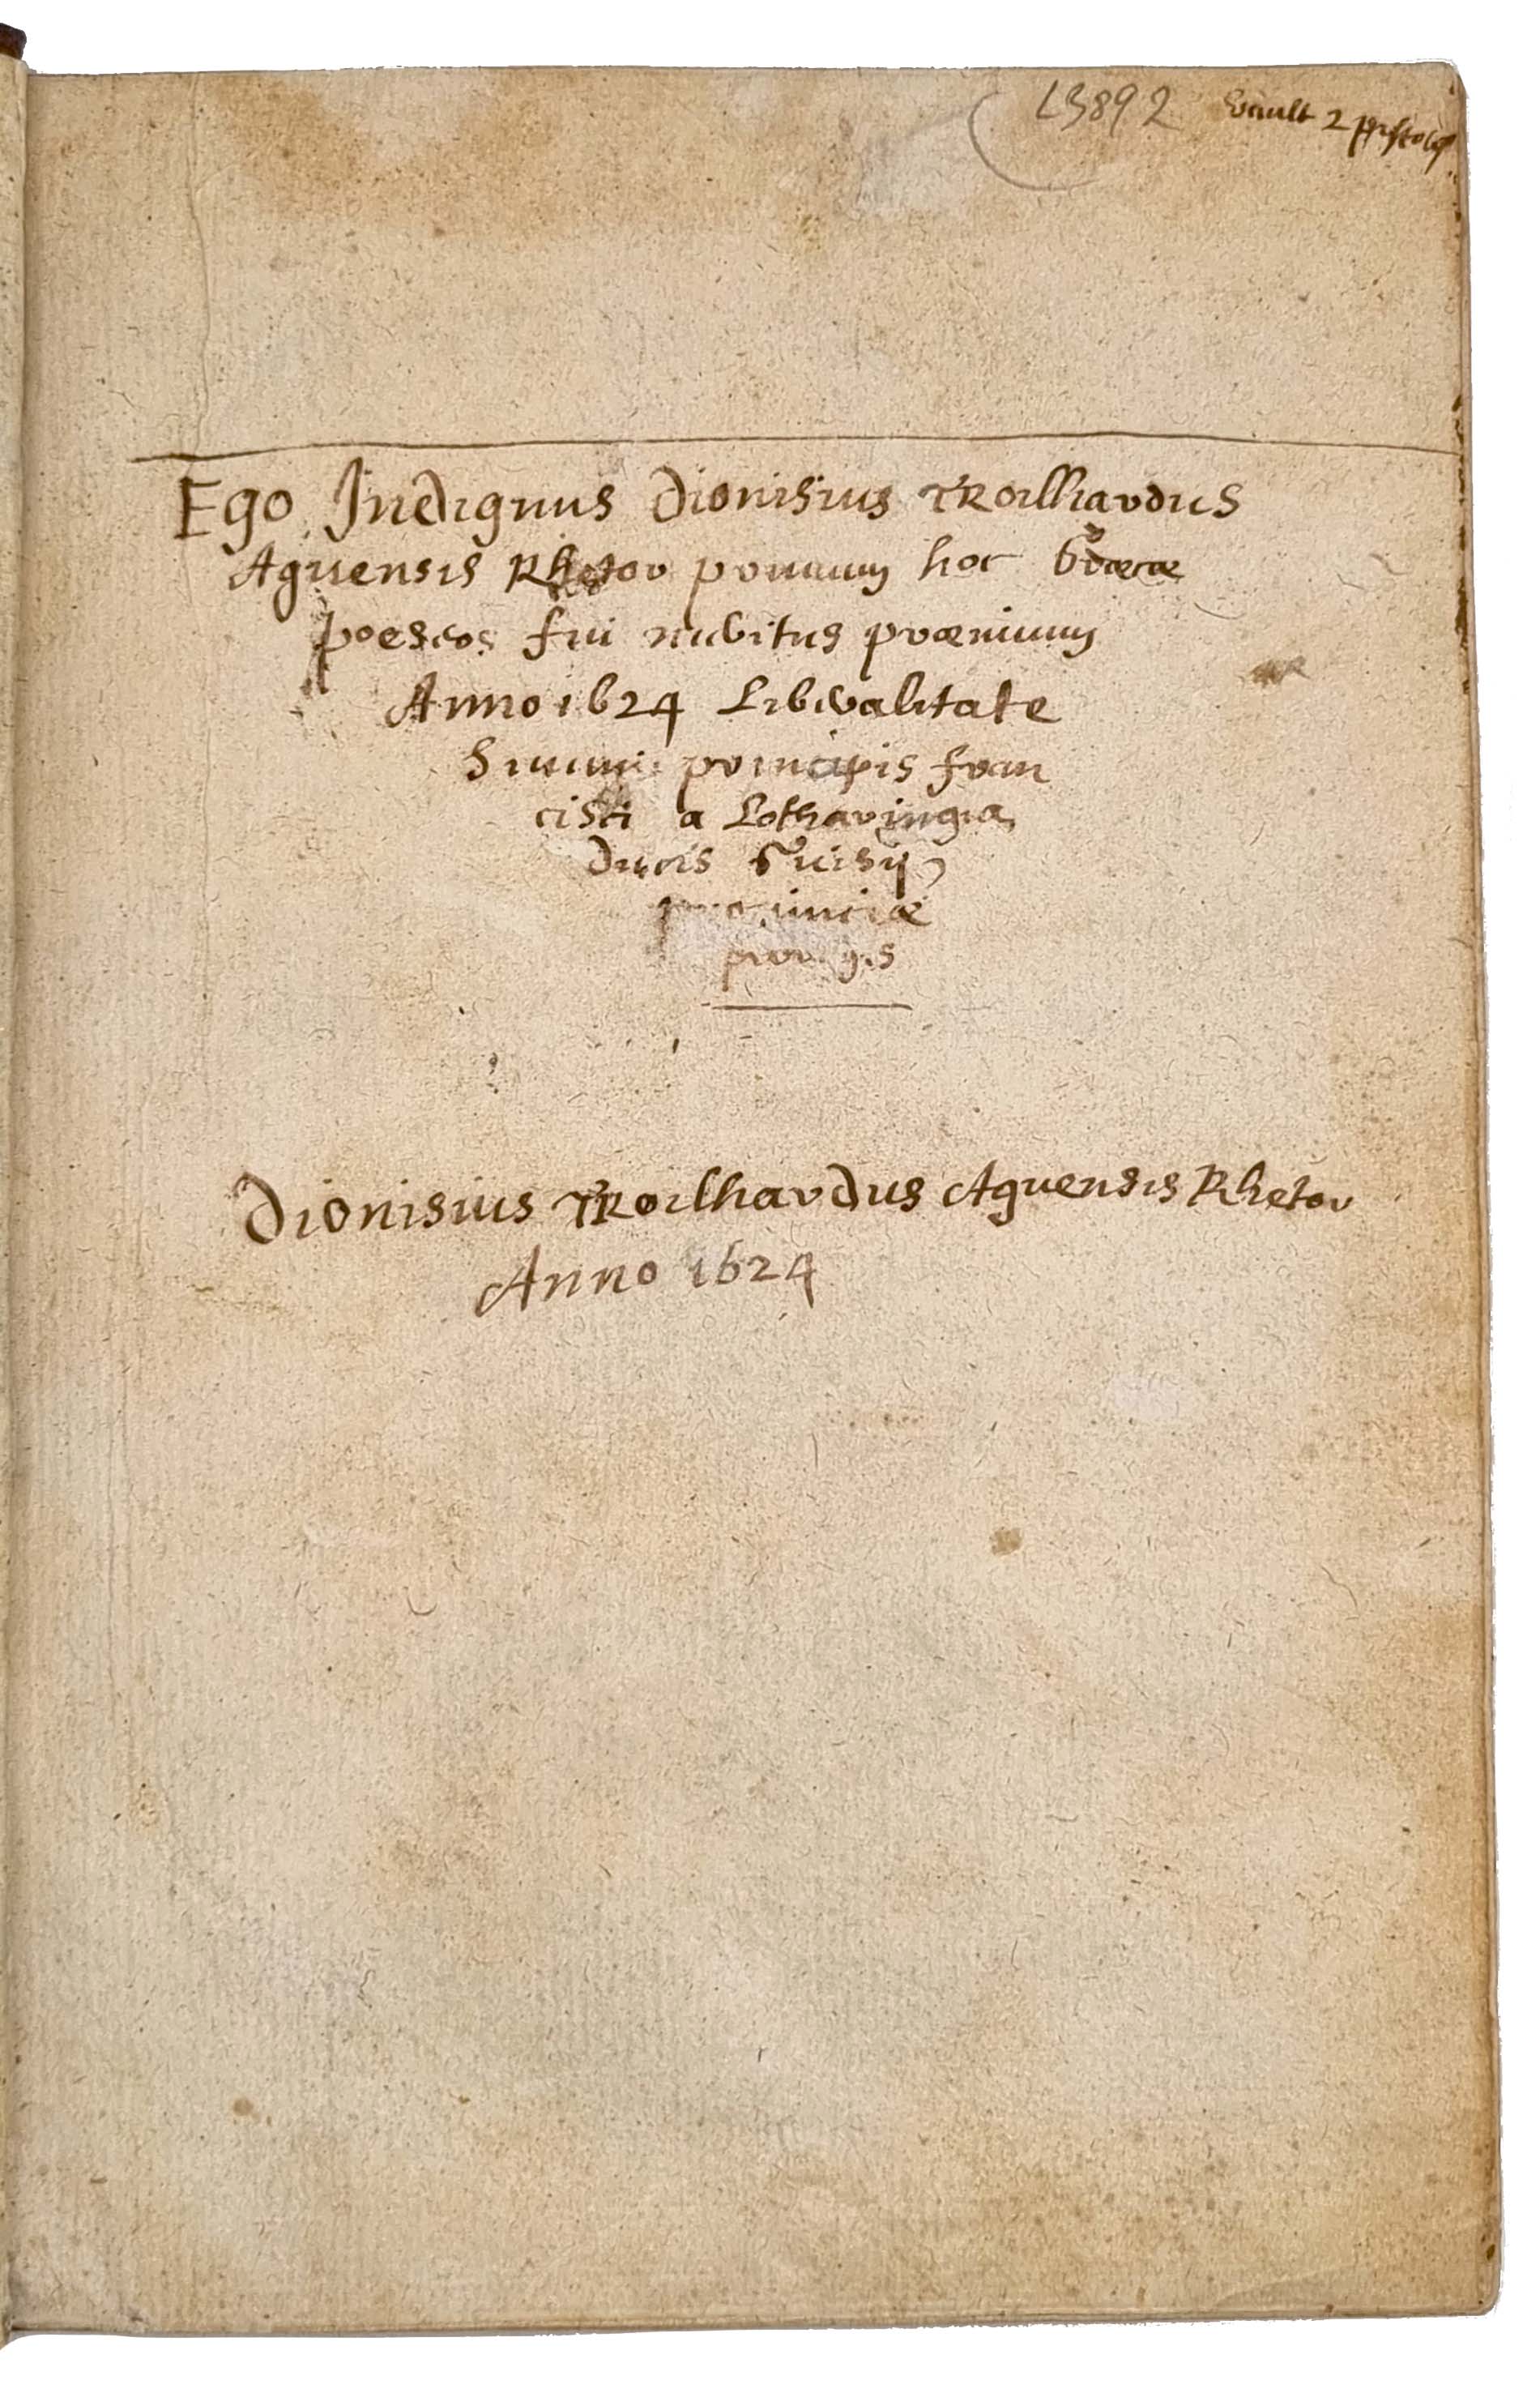 L3892 vault 2 pistoles
Ego Indignus Dionisius TRoilhardus
Aquensis Rhetor primum hoc Graecae
poeseos fui meritus praemium
Anno 1624 Liberalitate
Summi principis fran
cisci a Lotharingia
Ducis Guisij
provinciae
Dionisius TRoilhardus Aquensis Rhetor
Anno 1624